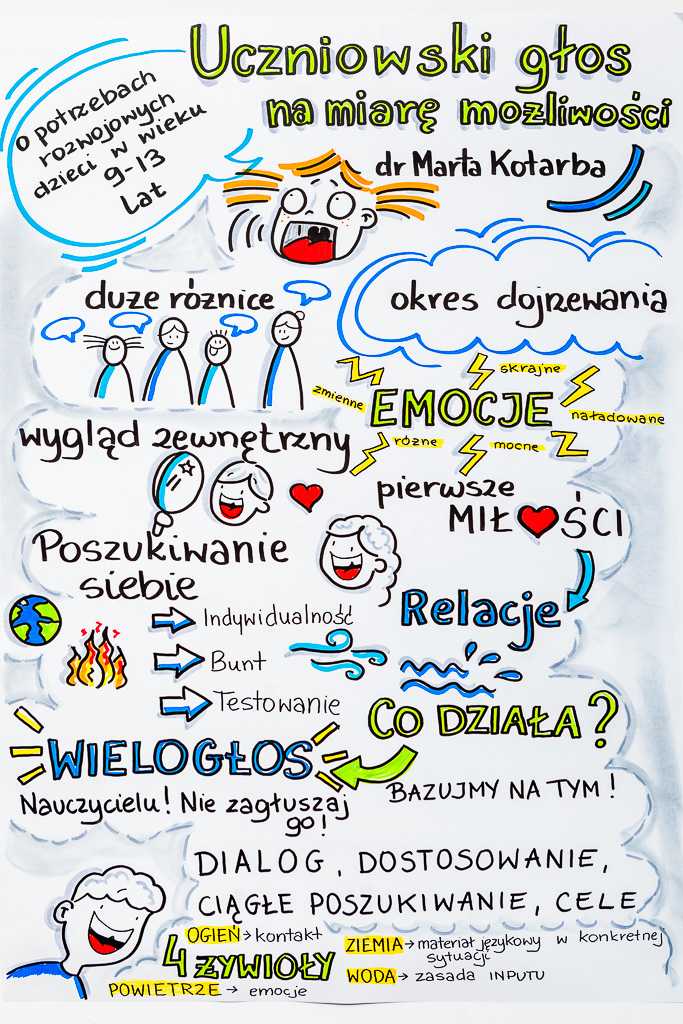 Uczniowski głos
na miarę możliwości
dr Marta Kotarba
o potrzebach
rozwojowych
dzieci w wieku
9-13
lat
duże różnice
okres dojrzewania
EMOCJE
zmienne
skrajne
naładowane
różne
mocne
wygląd zewnętrzny
pierwsze
MIŁOŚCI
Poszukiwanie
siebie
Indywidualność
Bunt
Testowanie
Relacje
CO DZIAŁA?
BAZUJMY NA TYM!
WIELOGŁOS
Nauczycielu! Nie zagłuszaj
go!
DIALOG, DOSTOSOWANIE,
CIĄGŁE POSZUKIWANIE, CELE
4 ŻYWIOŁY
OGIEŃ → kontakt
ZIEMIA → materiał językowy w konkretnej
sytuacji
WODA → zasada INPUTU
POWIETRZE → emocje